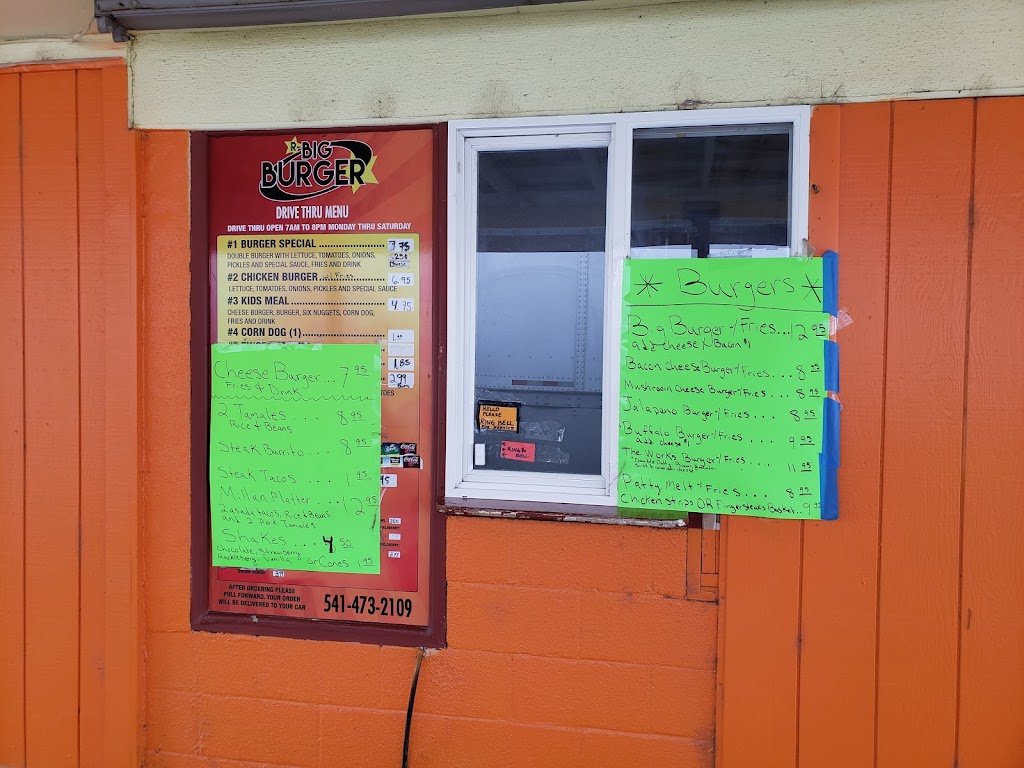 R-BIG
BURGER
DRIVE THRU MENU
DRIVE THRU OPEN 7AM TO 8PM MONDAY THRU SATURDAY
#1 BURGER SPECIAL 7.75
DOUBLE BURGER WITH LETTUCE, TOMATOES, ONIONS,
PICKLES AND SPECIAL SAUCE, FRIES AND DRINK
#2 CHICKEN BURGER w/ Fries 6.95
LETTUCE, TOMATOES, ONIONS, PICKLES AND SPECIAL SAUCE
#3 KIDS MEAL 4.75
CHEESE BURGER, BURGER, SIX NUGGETS, CORN DOG,
FRIES AND DRINK
#4 CORN DOG (1)
1.85
2.99
Cheese Burger... 7 95
Fries & Drink
2 Tamales .... 8 95
Rice & Beans
Steak Burrito... 8 95
Steak Tacos .... 1 95
Millan Platter .... 12 95
2 asada tacos, Rice & Beans
and 2 Pork Tamales
Shakes .... 4 50
Chocolate, Strawberry
Huckleberry, Vanilla or Cones 1 95
AFTER ORDERING PLEASE
PULL FORWARD. YOUR ORDER
WILL BE DELIVERED TO YOUR CAR
541-473-2109
HELLO
PLEASE
RING BELL
FOR SERVICE
RING THE
BELL
* Burgers *
Big Burger w/ Fries... 12 95
add cheese / Bacon $1
Bacon Cheese Burger w/ Fries... 8 95
Mushroom Cheese Burger w/ Fries... 8 95
Jalapano Burger w/ Fries... 8 95
Buffalo Burger w/ Fries .... 9 95
add cheese $1
The Works Burger w/ Fries.... 11 95
Patty Melt w/ Fries.... 8 95
Chicken Strips OR Fingersteaks Basket.. 9